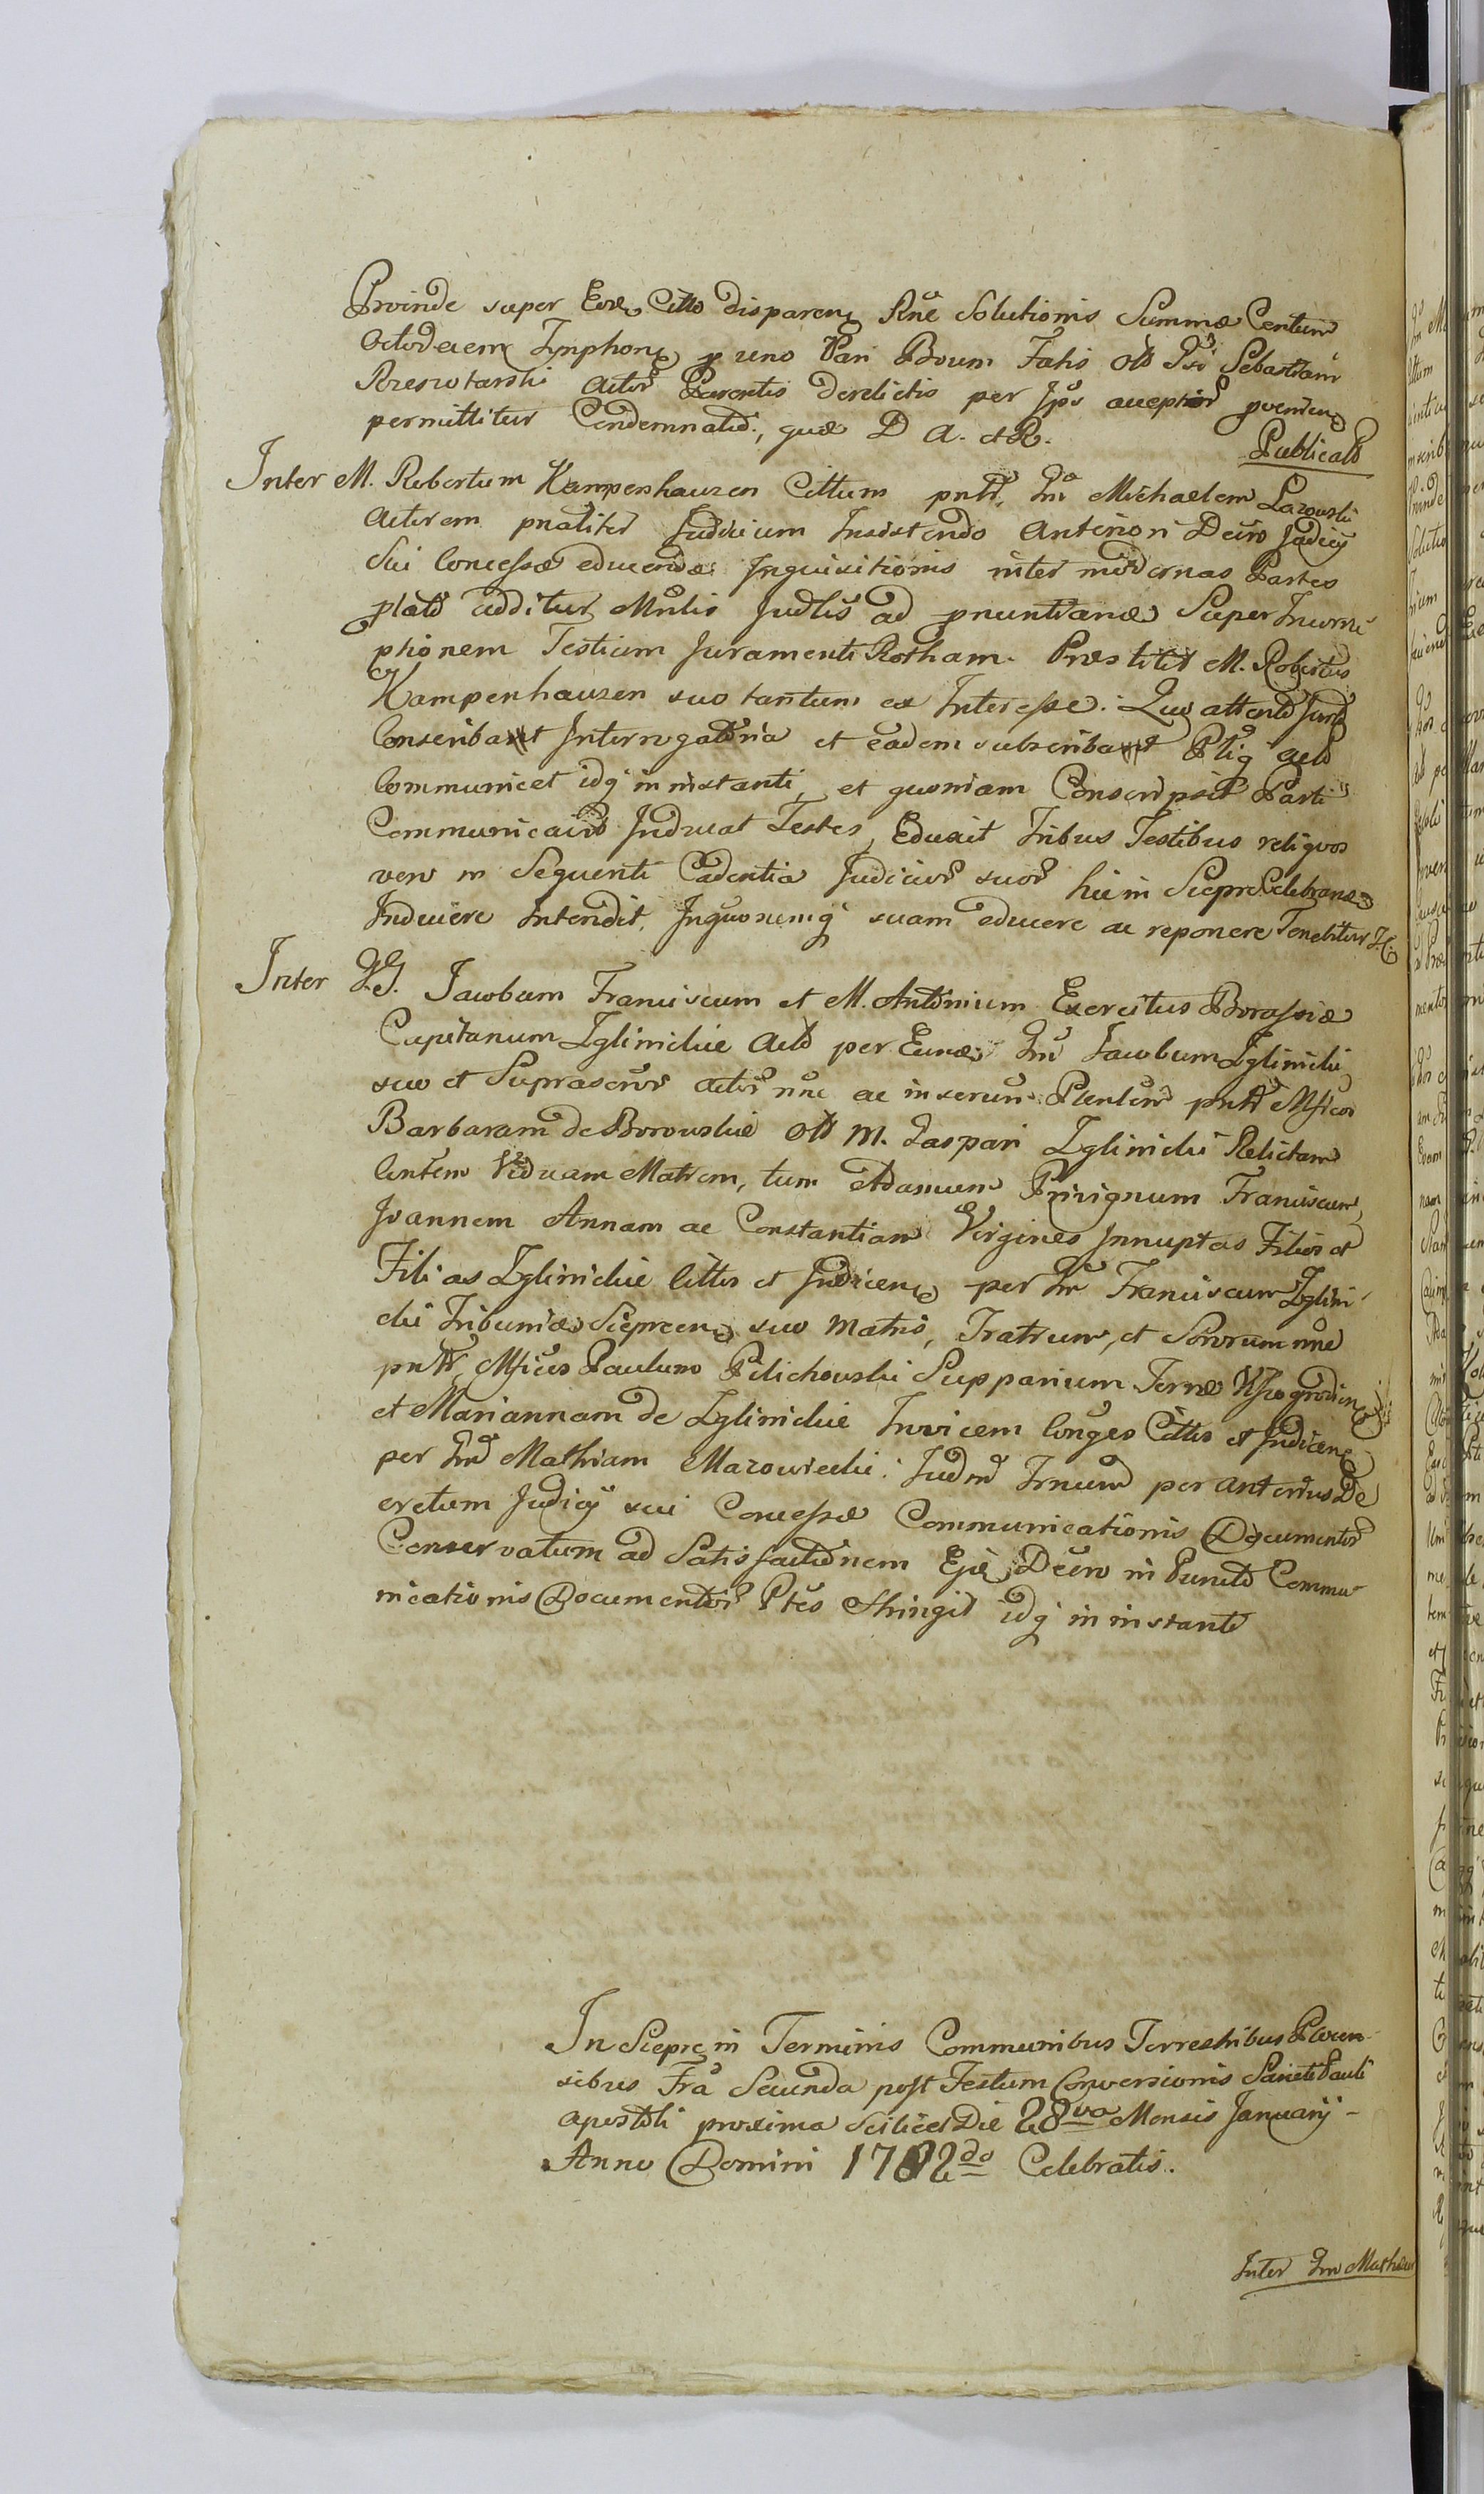 Proinde super Eod. Citto disparen. Rne Solutionis Summæ Centum
Octodecem Tynphon. p uno Pari Boum Fatis olt Gsi Sebastiani
Rzeszotarski Actor. Parentis derelictis per Ipos acceptor. pvenien.
permittitur Condemnatio., quæ D A. et R.
Publicatt
Inter M. Robertum Kampenhauzen Cittum pntt. Gm Michaelem Lazowski
Actorem pnaliter Judicium Insistendo Anteriori Decro Judicij
Sui Concessæ educendæ Inquisitionis inter modernas Partes
plato additur Mnlis Judlis ad pnuntianæ Super Incorru-
ptionem Testium Juramenti Rotham. Præstitit M. Robertus
Kampenhauzen suo tantum ex Interesse. Quo attento Jurto
Conscribat Interrogatoria et eadem subscribat Ptiq acto
Communicet idq in instanti, et quoniam Conscripsit Parti
Communicavit Inducat Testes, Eduxit Tribus Testibus reliquos
vero in Sequenti Cadentia Judicior. suor. hic in Sieprc Celebran.
Inducere Intendit, Inquonemq suam educere ac reponere Tenebitur
Inter GG. Jacobum Franciscum et M. Antonium Exercitus Borussiæ
Capitanum Zglinickie Acto per Eund. Gm Jacobum Zglinicki
suo et Suprascror. Actor. nne ac inserun. Plenten pntt Mficos
Barbaram de Borowskie olt M. Gaspari Zglinicki Relictam
Centem Viduam Matrem, tum Adamum Privignum Franciscum,
Joannem Annam ac Constantiam Virgines Innuptas Filios et
Filias Zglinickie Cittos et Indicen. per Gm Franciscum Zglini-
cki Tribunid. Sieprcen. suo Matris, Fratrum, et Sororum nne
pntt, Mficos Paulum Pilichowski Supparium Terræ Wyssogrodien.
et Mariannam de Zglinickie Invicem Conges Cittos et Indicen.
per Gm Mathiam Mazowiecki. Judm Trnum per anterius De
cretum Judicij sui Concessæ Communicationis Documentor.
Conservatum ad Satisfactionem Ejd. Decro in Puncto Commu-
nicationis Documentor. Ptes Stringit idq in instanti
In Sieprc in Terminis Communibus Terrestribus Plocen-
sibus Fra Secunda post Festum Conversionis Sancti Pauli
Apostoli proxima Scilicet Die 28va Mensis Januarij -
Anno Domini 1782do Celebratis.
Inter Gm Mathæum